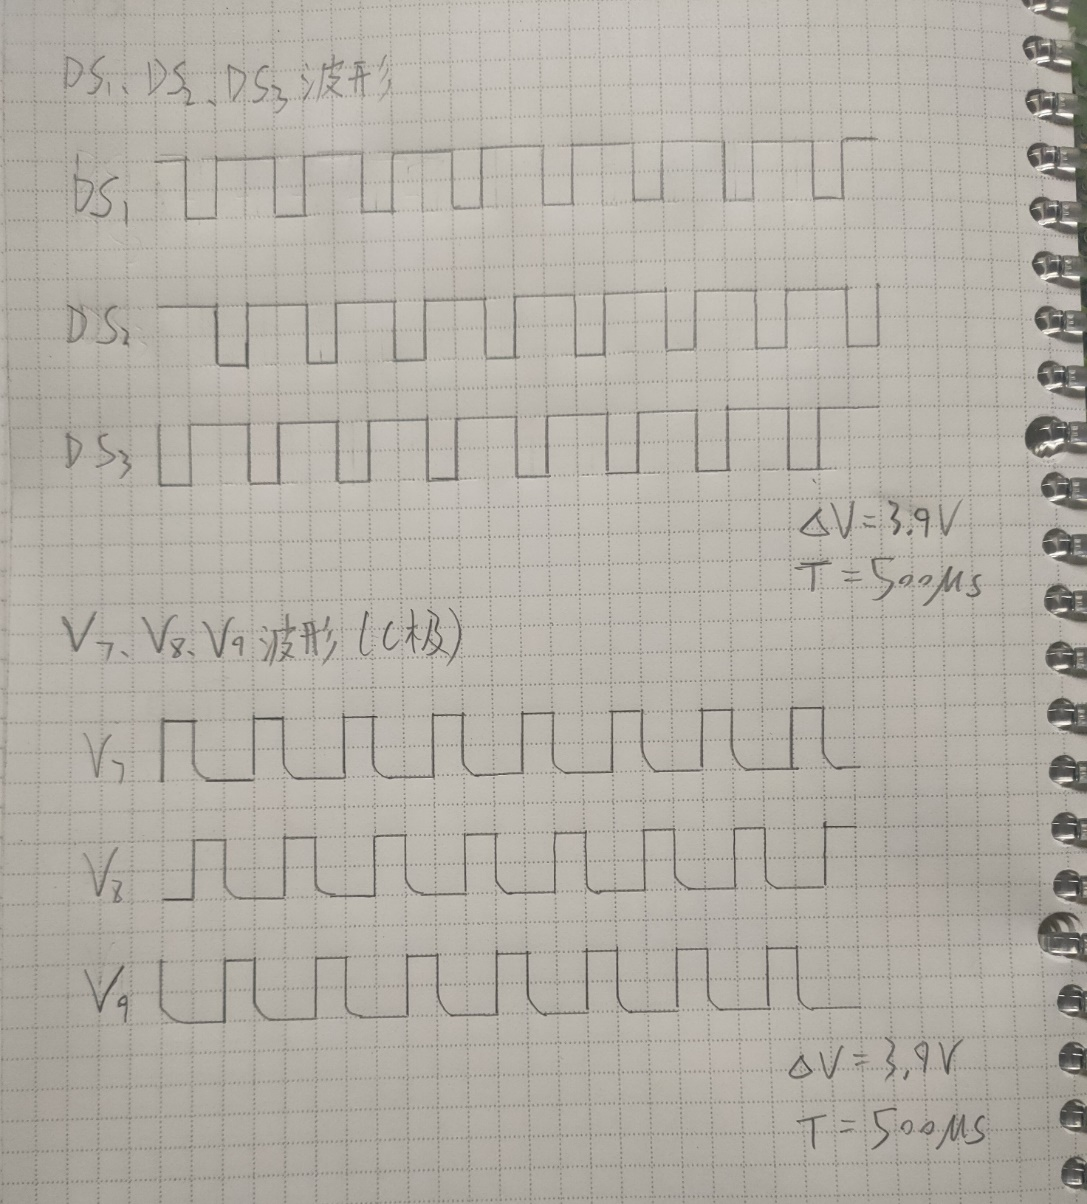 DS₁、DS₂、DS₃波形
DS₁
DS₂
DS₃
ΔV=3.9V
T=500μs
V₇、V₈、V₉波形(C极)
V₇
V₈
V₉
ΔV=3.9V
T=500μs